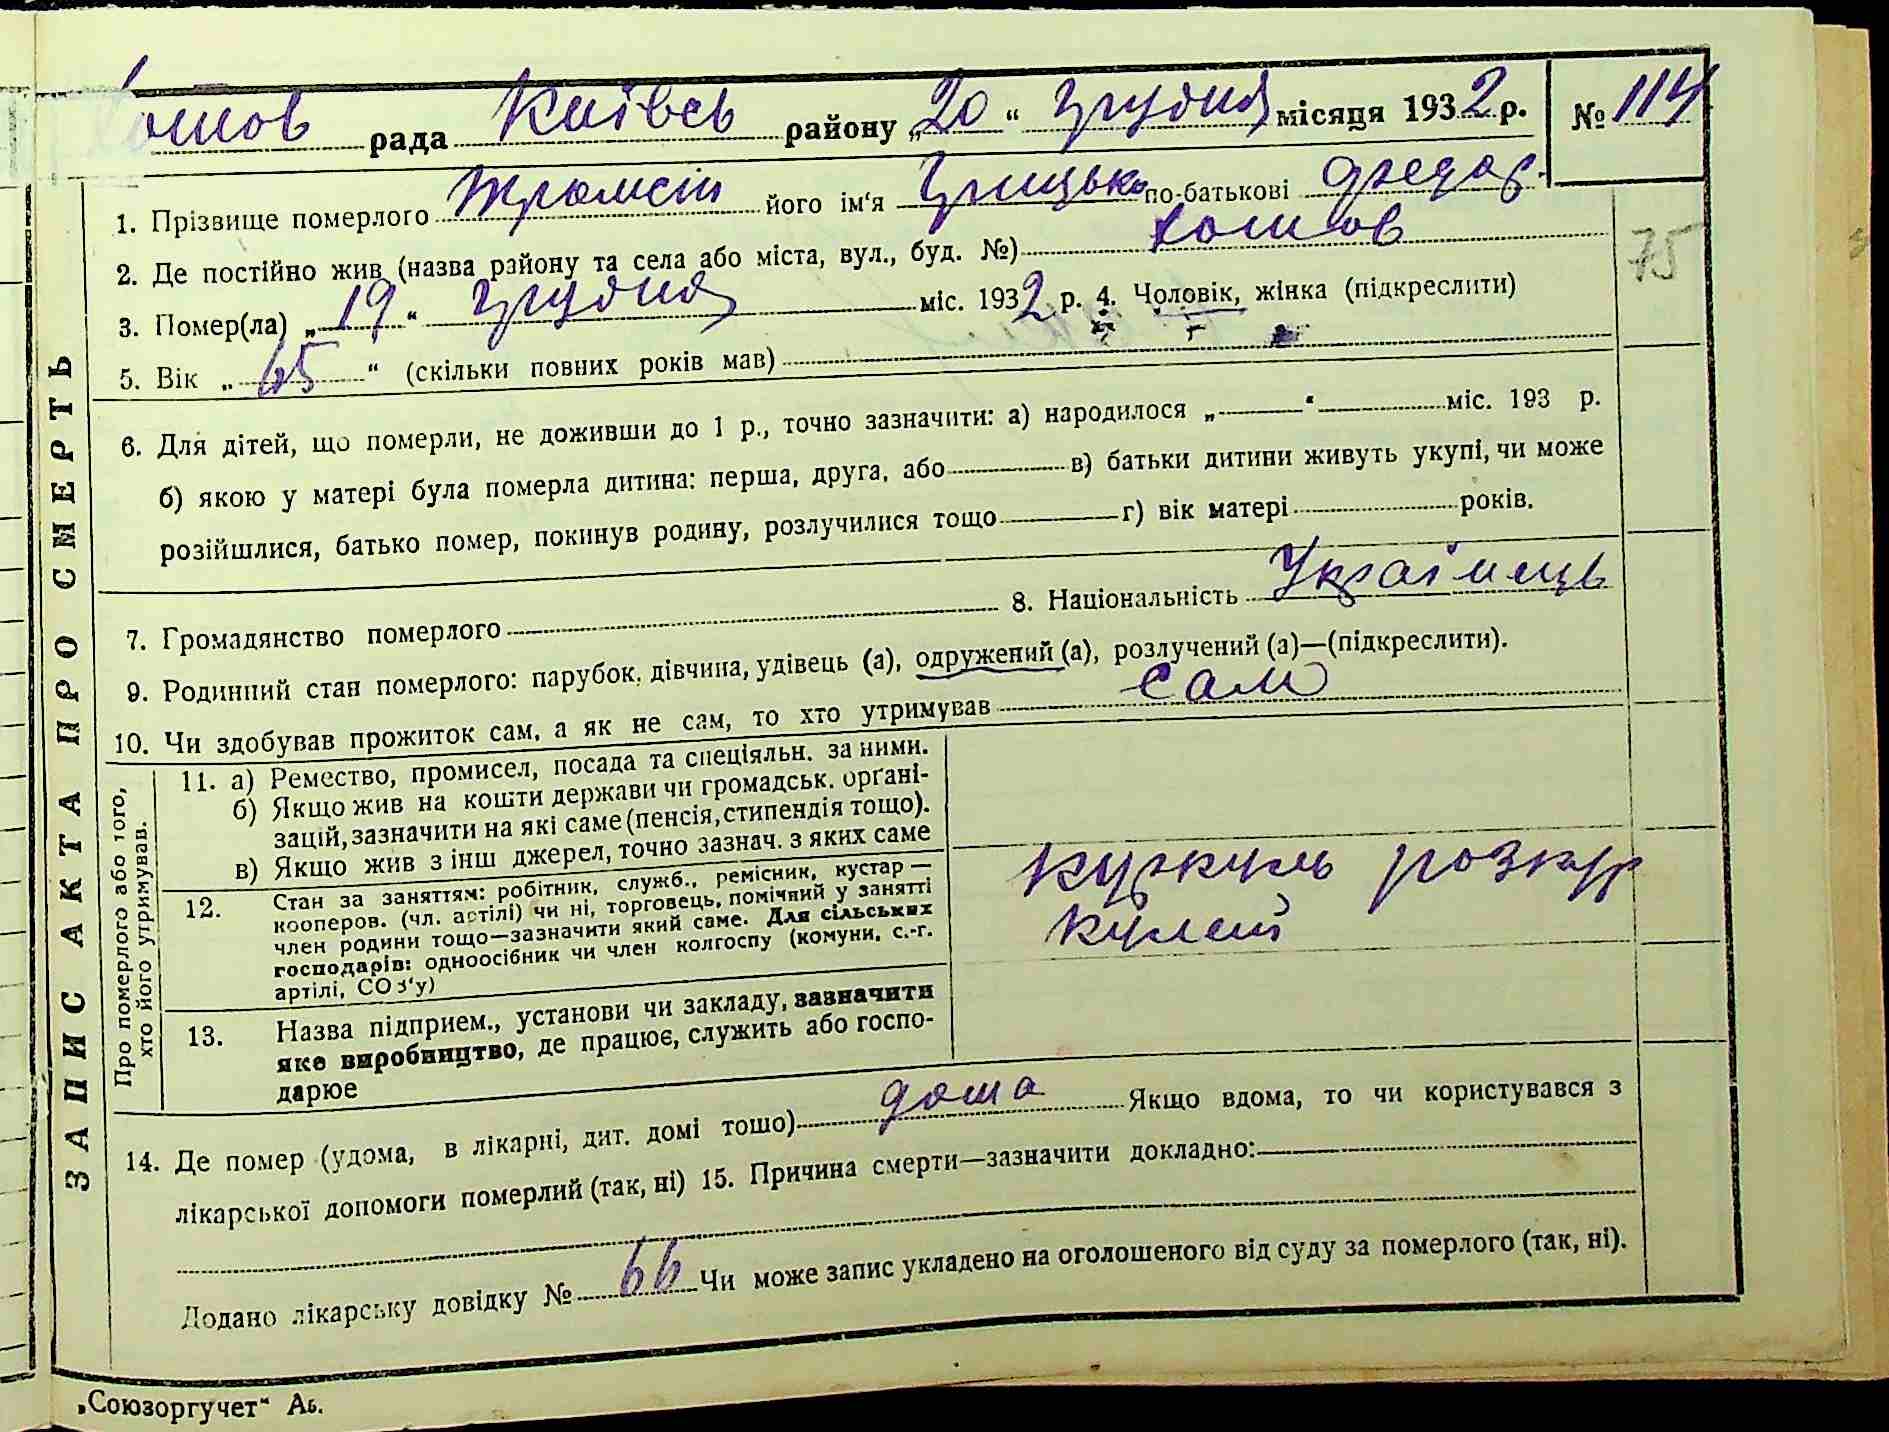 Хотов рада Київсь району „20“ Грудня місяця 1932 р. № 114
1. Прізвище померлого його ім‘я Грицько по-батькові Федор
2. Де постійно жив (назва району та села або міста, вул., буд. №) Хотов
3. Помер(ла) „19“ Грудня міс. 1932 р. 4. Чоловік, жінка (підкреслити)
75
5. Вік „65“ (скільки повних років мав)
6. Для дітей, що померли, не доживши до 1 р., точно зазначити: а) народилося „ “ міс. 193 р.
б) якою у матері була померла дитина: перша, друга, або в) батьки дитини живуть укупі, чи може
розійшлися, батько помер, покинув родину, розлучилися тощо г) вік матері років.
7. Громадянство померлого 8. Національність Українець
9. Родинний стан померлого: парубок, дівчина, удівець (а), одружений (а), розлучений (а)—(підкреслити).
10. Чи здобував прожиток сам, а як не сам, то хто утримував сам
ЗАПИС АКТА ПРО СМЕРТЬ
Про померлого або того,
хто його утримував.
11. а) Ремество, промисел, посада та спеціяльн. за ними.
б) Якщо жив на кошти держави чи громадськ. органі-
зацій, зазначити на які саме (пенсія, стипендія тощо).
в) Якщо жив з інш джерел, точно зазнач. з яких саме
12. Стан за заняттям: робітник, служб., ремісник, кустар —
кооперов. (чл. артілі) чи ні, торговець, помічний у занятті
член родини тощо—зазначити який саме. Для сільських
господарів: одноосібник чи член колгоспу (комуни, с.-г.
артілі, СОЗ‘у)
куркуль розкур
кулений
13. Назва підприєм., установи чи закладу, зазначити
яке виробництво, де працює, служить або госпо-
дарює
14. Де помер (удома, в лікарні, дит. домі тощо) дома Якщо вдома, то чи користувався з
лікарської допомоги померлий (так, ні) 15. Причина смерти—зазначити докладно:
Додано лікарську довідку № 66 Чи може запис укладено на оголошеного від суду за померлого (так, ні).
„Союзоргучет“ Аб.